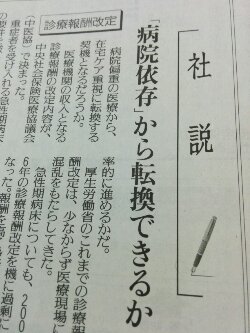 社説
「病院依存」から転換できるか
診療報酬改定
病院偏重の医療から、
在宅ケア重視に転換する
契機となるだろうか。
医療機関の収入となる
診療報酬の改定内容が、
中央社会保険医療協議会
（中医協）で決まった。
重症者を受け入れる急性期病床
率的に進めるかだ。
厚生労働省のこれまでの診療報
酬改定は、少なからず医療現場に
混乱をもたらしてきた。
急性期病床についても、200
6年の診療報酬改定を機に過剰に
なった。報酬を高